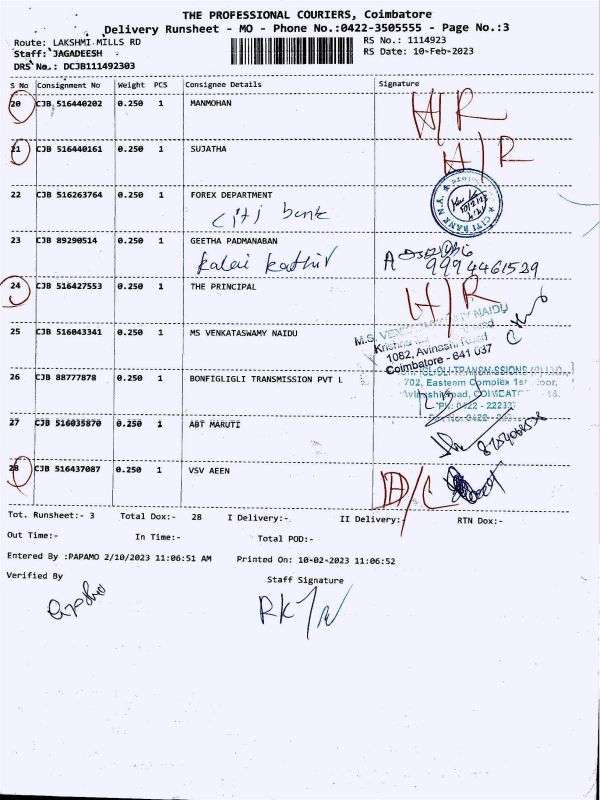 THE PROFESSIONAL COURIERS, Coimbatore
Delivery Runsheet - MO - Phone No.:0422-3505555 - Page No.:3
Route: LAKSHMI MILLS RD RS No.: 1114923
Staff: JAGADEESH RS Date: 10-Feb-2023
DRS No.: DCJB111492303
S No Consignment No Weight PCS Consignee Details Signature
20 CJB 516440202 0.250 1 MANMOHAN H/R
21 CJB 516440161 0.250 1 SUJATHA H/R
22 CJB 516263764 0.250 1 FOREX DEPARTMENT
citi bank
CITI BANK N.A.
23 CJB 89290514 0.250 1 GEETHA PADMANABAN
kalai kathir 9994461529
24 CJB 516427553 0.250 1 THE PRINCIPAL H/R
25 CJB 516043341 0.250 1 MS VENKATASWAMY NAIDU
M.S. VENKATASWAMY NAIDU
1082, Avinashi Road
Coimbatore - 641 037
26 CJB 88777878 0.250 1 BONFIGLIGLI TRANSMISSION PVT L
702, Eastern Complex 1st Floor,
27 CJB 516035870 0.250 1 ABT MARUTI
28 CJB 516437087 0.250 1 VSV AEEN D/C
Tot. Runsheet:- 3 Total Dox:- 28 I Delivery:- II Delivery:- RTN Dox:-
Out Time:- In Time:- Total POD:-
Entered By :PAPAMO 2/10/2023 11:06:51 AM Printed On: 10-02-2023 11:06:52
Verified By Staff Signature